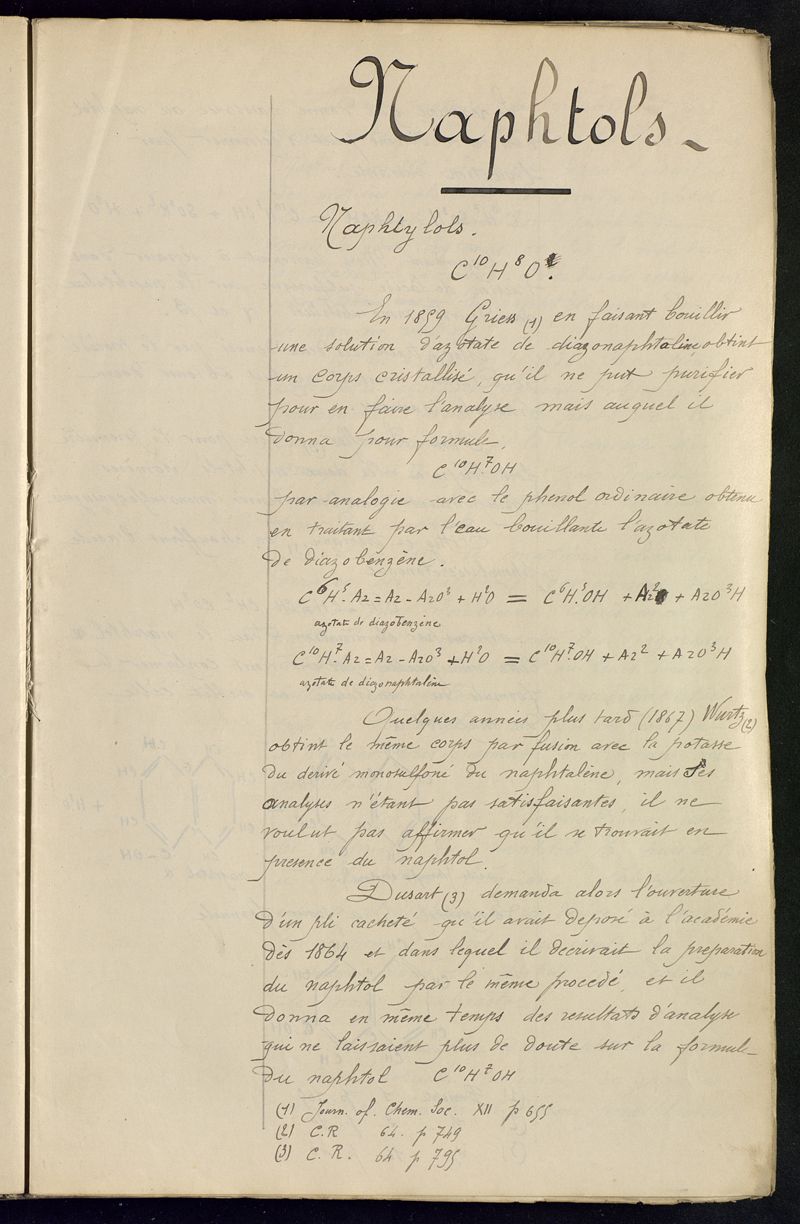 Naphtols -
Naphtylols.
C¹⁰H⁸O.
En 1859 Griess (1) en faisant bouillir
une solution d'azotate de diazonaphtaline, obtint
un corps cristallisé, qu'il ne put purifier
pour en faire l'analyse mais auquel il
donna pour formule,
C¹⁰H⁷.OH
par analogie avec le phenol ordinaire obtenu
en traitant par l'eau bouillante l'azotate
de diazobenzène.
C⁶H⁵.Az=Az-AzO³ + H²O = C⁶H⁵.OH + Az² + AzO³H
azotate de diazobenzène
C¹⁰H⁷.Az=Az-AzO³ + H²O = C¹⁰H⁷.OH + Az² + AzO³H
azotate de diazonaphtaline
Quelques années plus tard (1867) Wurtz (2)
obtint le même corps par fusion avec la potasse
du derivé monosulfoné du naphtalène, mais ses
analyses n'étant pas satisfaisantes, il ne
voulut pas affirmer qu'il se trouvait en
presence du naphtol.
Dusart (3) demanda alors l'ouverture
d'un pli cacheté qu'il avait deposé à l'académie
dès 1864 et dans lequel il decrivait la preparation
du naphtol par le même procedé, et il
donna en même temps des resultats d'analyse
qui ne laissaient plus de doute sur la formule
du naphtol C¹⁰H⁷OH
(1) Journ. of. Chem. Soc. XII p 655
(2) C.R 64. p 749
(3) C. R. 64 p 795